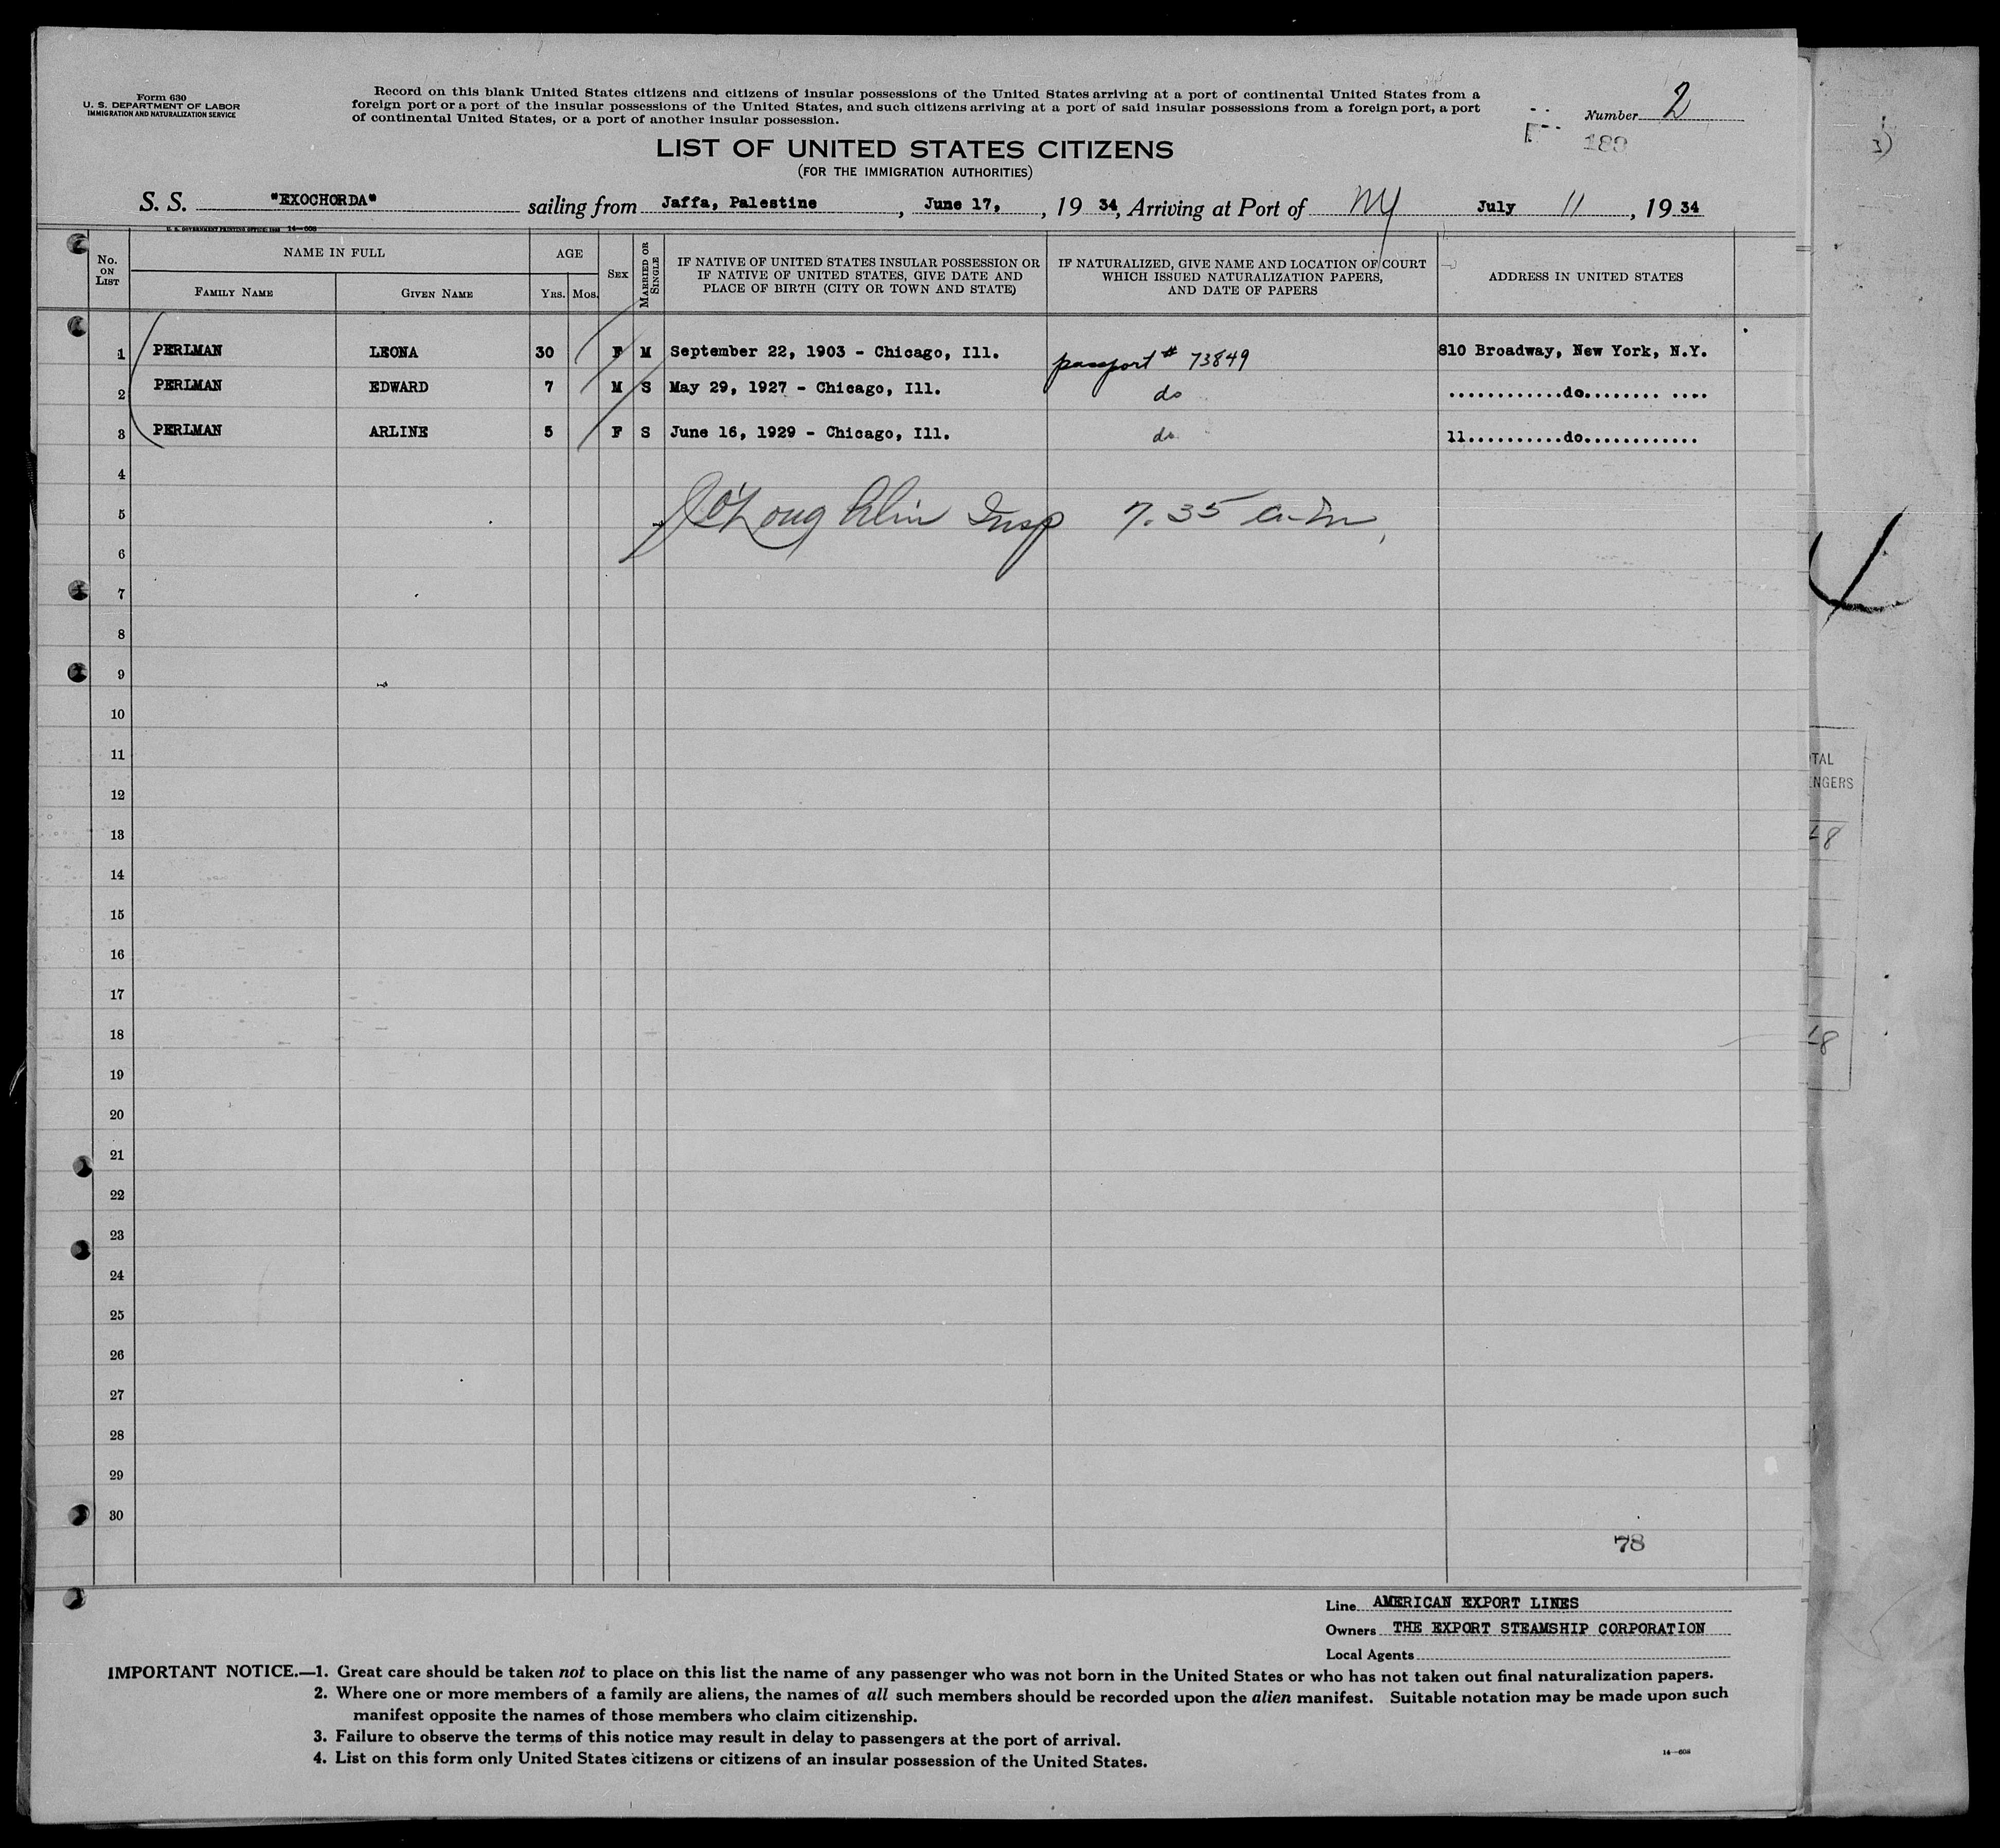 Form 630
U. S. DEPARTMENT OF LABOR
IMMIGRATION AND NATURALIZATION SERVICE
Record on this blank United States citizens and citizens of insular possessions of the United States arriving at a port of continental United States from a
foreign port or a port of the insular possessions of the United States, and such citizens arriving at a port of said insular possessions from a foreign port, a port
of continental United States, or a port of another insular possession.
Number 2
189
LIST OF UNITED STATES CITIZENS
(FOR THE IMMIGRATION AUTHORITIES)
S. S. "EXOCHORDA" sailing from Jaffa, Palestine, June 17, , 19 34, Arriving at Port of NY July 11, 19 34
U. S. GOVERNMENT PRINTING OFFICE 14—608
No. ON LIST
NAME IN FULL
FAMILY NAME
GIVEN NAME
AGE
YRS.
MOS.
SEX
MARRIED OR SINGLE
IF NATIVE OF UNITED STATES INSULAR POSSESSION OR
IF NATIVE OF UNITED STATES, GIVE DATE AND
PLACE OF BIRTH (CITY OR TOWN AND STATE)
IF NATURALIZED, GIVE NAME AND LOCATION OF COURT
WHICH ISSUED NATURALIZATION PAPERS,
AND DATE OF PAPERS
ADDRESS IN UNITED STATES
1 PERLMAN LEONA 30 F M September 22, 1903 - Chicago, Ill. passport # 73849 810 Broadway, New York, N.Y.
2 PERLMAN EDWARD 7 M S May 29, 1927 - Chicago, Ill. do ............do........ ....
3 PERLMAN ARLINE 5 F S June 16, 1929 - Chicago, Ill. do 11..........do............
4
5 O'Loughlin Insp 7.35 a-m,
6
7
8
9
10
11
12
13
14
15
16
17
18
19
20
21
22
23
24
25
26
27
28
29
30
78
Line AMERICAN EXPORT LINES
Owners THE EXPORT STEAMSHIP CORPORATION
Local Agents
IMPORTANT NOTICE.—1. Great care should be taken not to place on this list the name of any passenger who was not born in the United States or who has not taken out final naturalization papers.
2. Where one or more members of a family are aliens, the names of all such members should be recorded upon the alien manifest. Suitable notation may be made upon such
manifest opposite the names of those members who claim citizenship.
3. Failure to observe the terms of this notice may result in delay to passengers at the port of arrival.
4. List on this form only United States citizens or citizens of an insular possession of the United States.
14—608
TAL
NGERS
8
8